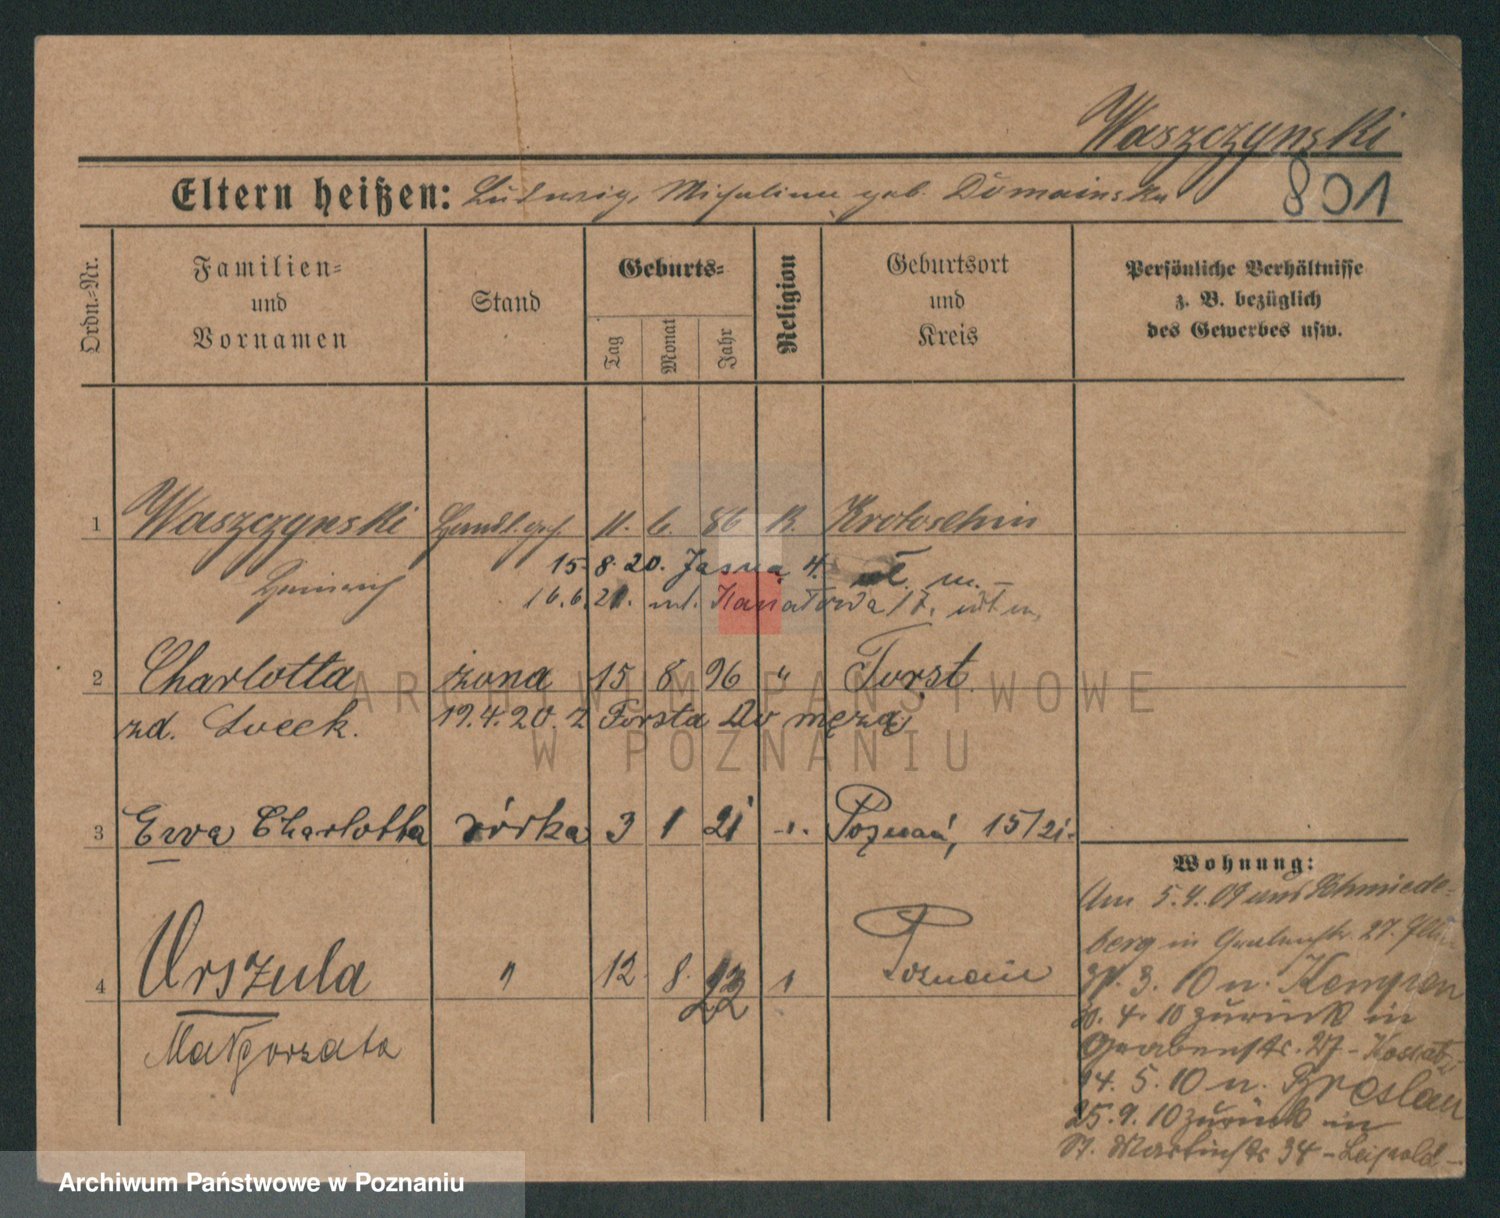 Waszczynski
Eltern heißen: Ludwig, Michalina geb. Domainska
801
Ordn.-Nr.
Familien-
und
Vornamen
Stand
Geburts-
Tag
Monat
Jahr
Religion
Geburtsort
und
Kreis
Persönliche Verhältnisse
z. B. bezüglich
des Gewerbes usw.
1 Waszczynski Handl. geh. 11. 6. 86 K. Krotoschin
Heinrich
15. 8. 20. Jasna 4.
16.6.21. ul. Kanałowa
2 Charlotta żona 15 8 96 " Forst.
zd. Lueck. 19.4.20. z Forsta do męża
3 Ewa Charlotta córka 3 1 21 Poznań, 15/21.
4 Urszula " 12. 8. 23 Poznań
Małgorzata
Wohnung:
Am 5.4.09 aus Schmiede-
berg in Grabenstr. 27.
3. 10 n. Kempen
20. 4. 10 zurück in
Grabenstr. 27 -
14. 5. 10 n. Breslau
25. 9. 10 zurück in
St. Martinstr 34 - Leipold -
ARCHIWUM PAŃSTWOWE
W POZNANIU
Archiwum Państwowe w Poznaniu